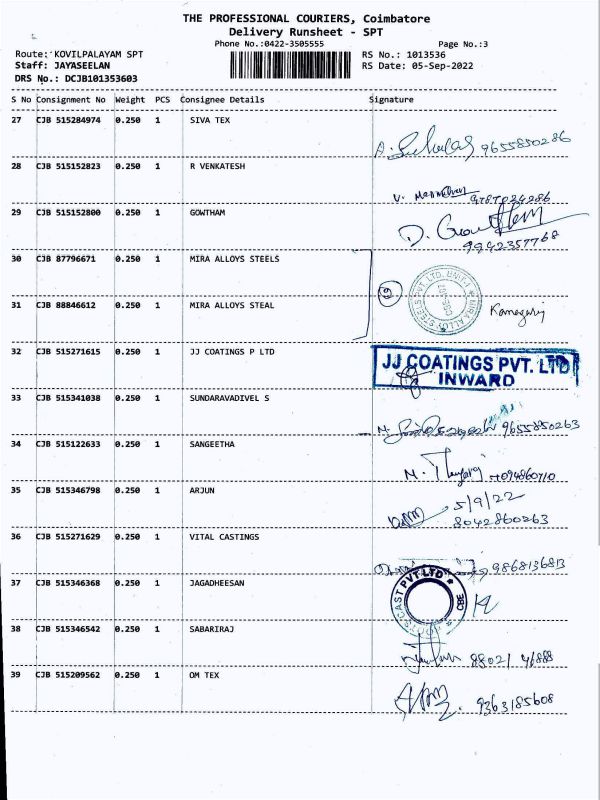 THE PROFESSIONAL COURIERS, Coimbatore
Delivery Runsheet - SPT
Phone No.:0422-3505555 Page No.:3
Route: KOVILPALAYAM SPT RS No.: 1013536
Staff: JAYASEELAN RS Date: 05-Sep-2022
DRS No.: DCJB101353603
S No Consignment No Weight PCS Consignee Details Signature
27 CJB 515284974 0.250 1 SIVA TEX
9655850286
28 CJB 515152823 0.250 1 R VENKATESH
29 CJB 515152800 0.250 1 GOWTHAM
D. Gowtham
9942357768
30 CJB 87796671 0.250 1 MIRA ALLOYS STEELS
31 CJB 88846612 0.250 1 MIRA ALLOYS STEAL
32 CJB 515271615 0.250 1 JJ COATINGS P LTD
JJ COATINGS PVT. LTD
INWARD
33 CJB 515341038 0.250 1 SUNDARAVADIVEL S
9655850263
34 CJB 515122633 0.250 1 SANGEETHA
35 CJB 515346798 0.250 1 ARJUN
5/9/22
8042860263
36 CJB 515271629 0.250 1 VITAL CASTINGS
9868136813
37 CJB 515346368 0.250 1 JAGADHEESAN
CAST PVT LTD * CBE
38 CJB 515346542 0.250 1 SABARIRAJ
39 CJB 515209562 0.250 1 OM TEX
9363185608